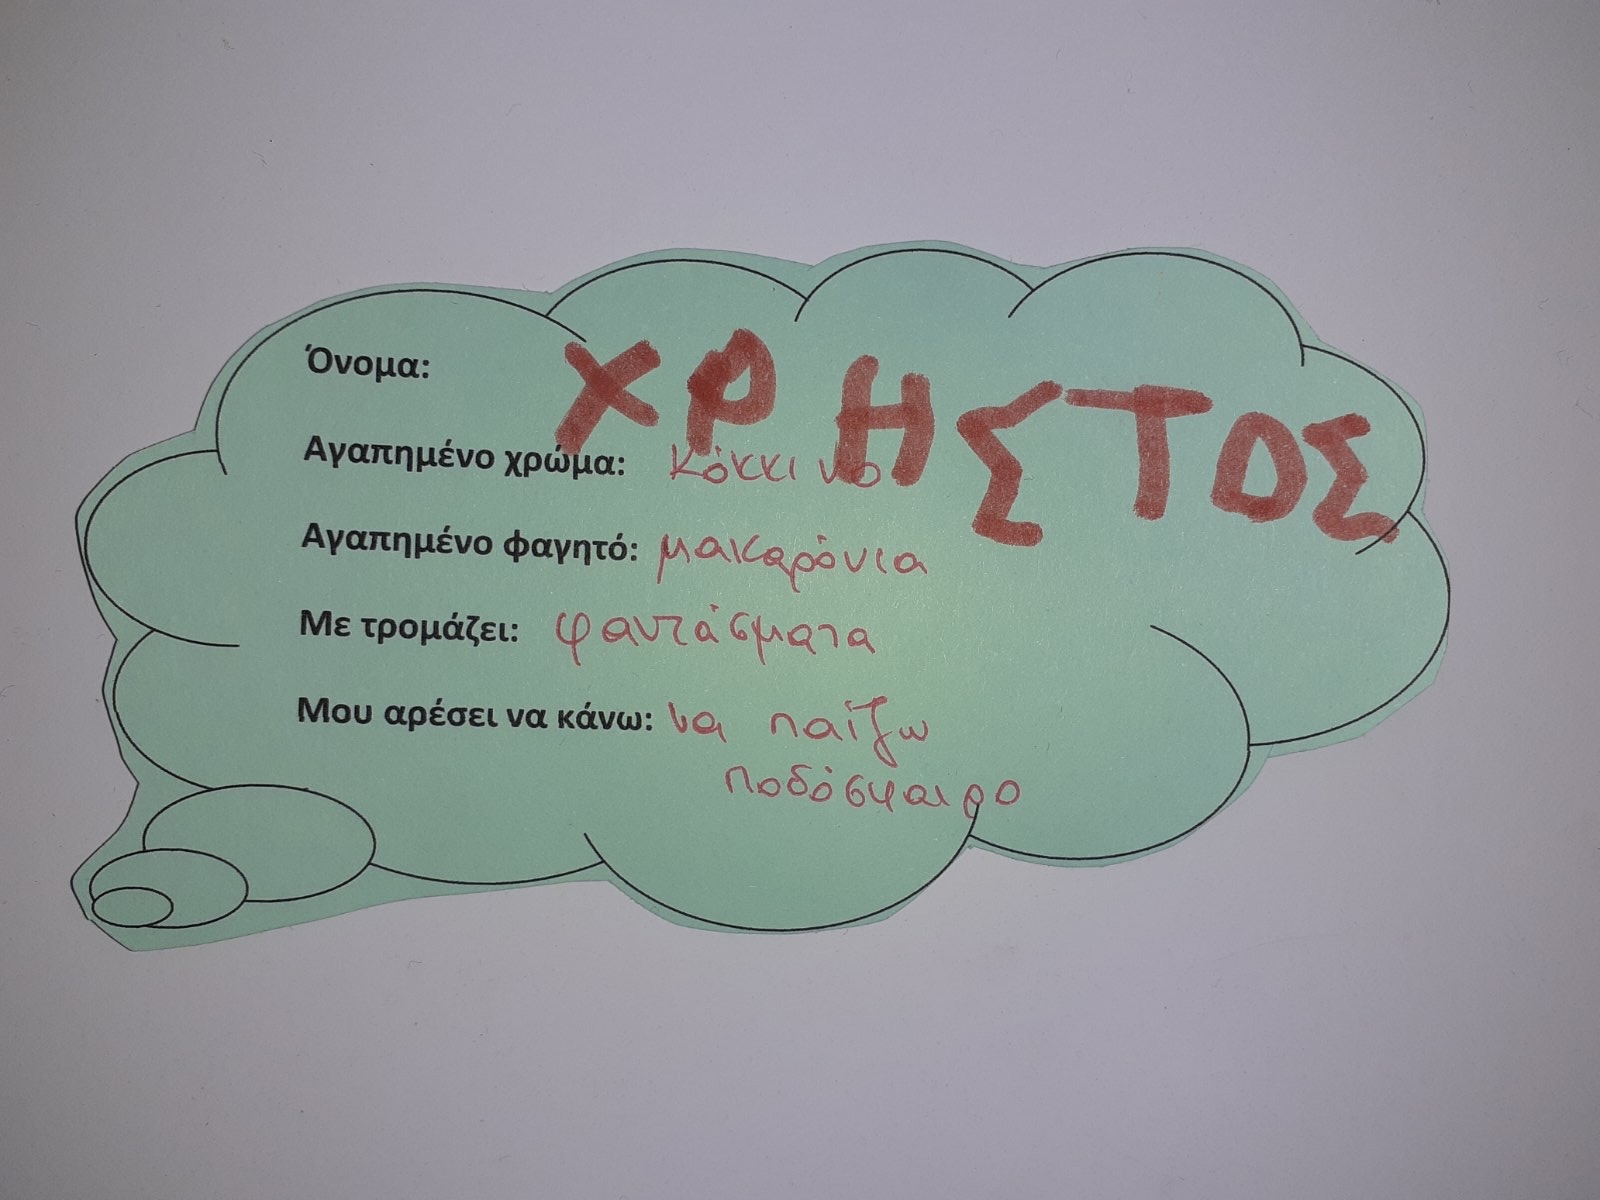 Όνομα: ΧΡΗΣΤΟΣ
Αγαπημένο χρώμα: Κόκκινο
Αγαπημένο φαγητό: μακαρόνια
Με τρομάζει: φαντάσματα
Μου αρέσει να κάνω: να παίζω
ποδόσφαιρο